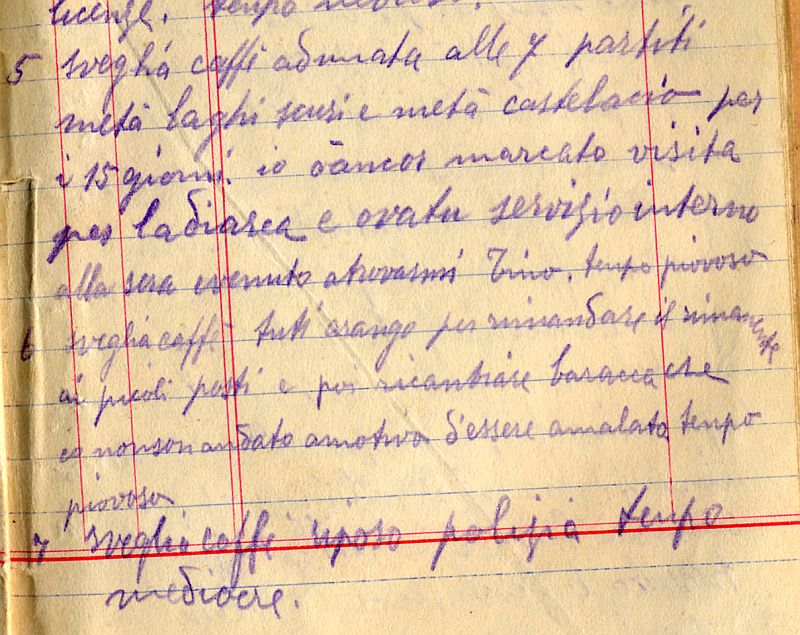 licenze. tempo nevoso.
5 sveglia caffè adunata alle 7 partiti
metà laghi scuri e metà castelacio per
i 15 giorni. io ò ancor marcato visita
per la diarea e ò vatu servizio interno
alla sera evenuto atrovarmi Tino. tempo piovoso
6 sveglia caffè tuti per rimandare il rimanente
ai picoli posti e per ricambiare baracca che
io nonson andato amotivo d'essere amalato tempo
piovoso
7 sveglia caffè riposo polizia tempo
mediocre.